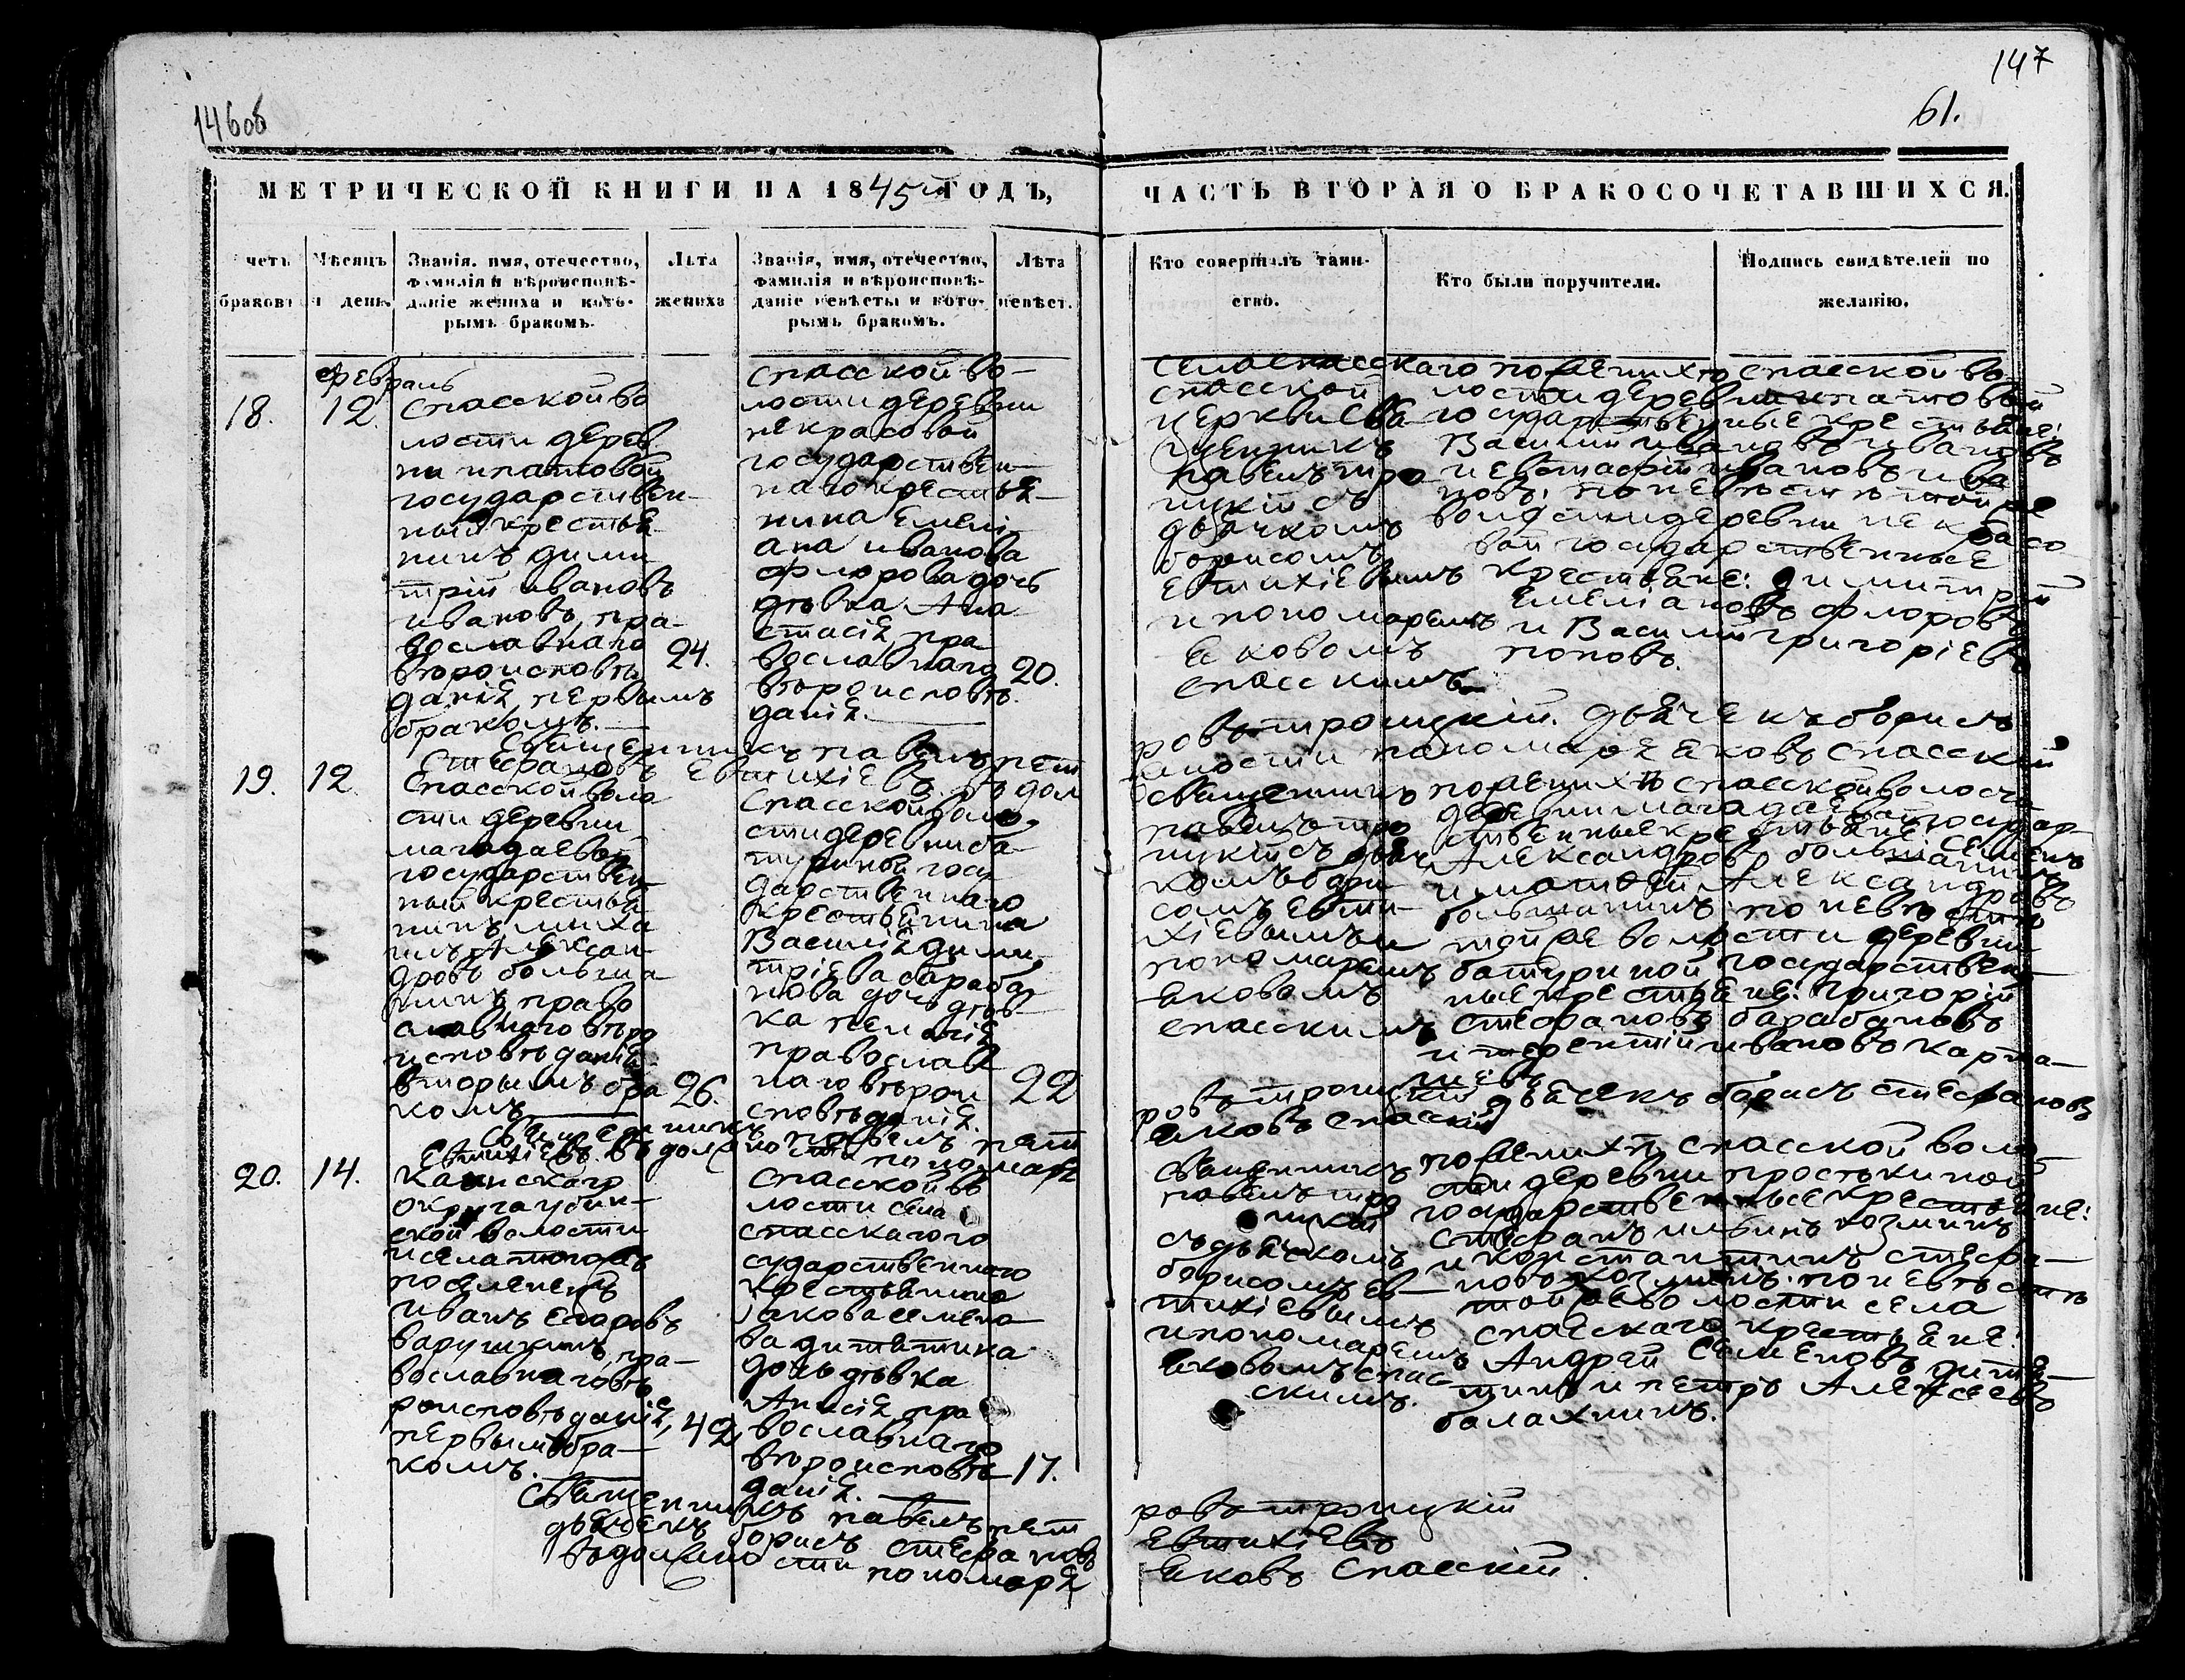 146об
147
61.
МЕТРИЧЕСКОЙ КНИГИ НА 1845й ГОДЪ,
ЧАСТЬ ВТОРАЯ О БРАКОСОЧЕТАВШИХСЯ.
четъ
браковъ
Мѣсяцъ
и день.
Званія, имя, отечество,
фамилія и вѣроисповѣ-
даніе жениха и кото-
рымъ бракомъ.
Лѣта
жениха
Званія, имя, отечество,
фамилія и вѣроисповѣ-
даніе невѣсты и кото-
рымъ бракомъ.
Лѣта
невѣст.
Кто совершалъ таин-
ство.
Кто были поручители.
Подпись свидѣтелей по
желанію.
февраль
18.
12.
Спасской во
лости дерев
ни ипатовой
государствен-
ный крестья
нинъ дими
трій ивановъ
ивановъ, пра-
вославнаго
вѣроисповѣ
данія, первымъ
бракомъ.
24.
спасской во-
лости деревни
некрасовой
государствен-
наго крестья-
нина Емелі
ана иванова
флорова дочь
дѣвка Ана
стасія, пра
вославнаго
вѣроисповѣ.
данія.
20.
села спасскаго
спасской
церкви свя
щенникъ
павелъ тро
ицкій съ
дьячкомъ
борисомъ
Евтихіевымъ
и пономаремъ
яковомъ
спасскимъ
по женихѣ спасской во
лости деревни ипатовой
государственные крестьяне:
Василій ивановъ ивановъ
и евстафій ивановъ ива
новъ. по невѣстѣ той же
волости деревни некрасо
вой государственные
крестьяне: димитрій
Емеліановъ флоровъ
и Василій григоріевъ
поповъ.
Священникъ павелъ пет
ровъ троицкій. дьячекъ борисъ
Стефановъ Евтихіевъ. въ дол
жности пономаря яковъ спасскій
19.
12.
Спасской воло
сти деревни
магадаевой
государствен
ный крестья
нинъ миха
илъ Алексан
дровъ больша
нинъ право
славнаго вѣро
исповѣданія
вторымъ бра
комъ
26.
Спасской воло
сти деревни ба
туриной госу
дарственнаго
крестьянина
Василія дими
тріева бараба
нова дочь дѣв-
ка
православ
наго вѣрои
сповѣданія.
22
священникъ
павелъ тро
ицкій съ дьяч
комъ бори
сомъ евти-
хіевымъ и
пономаремъ
яковомъ
спасскимъ
по женихѣ спасской волости
деревни магадаевой государ-
ственные крестьяне: семенъ
Александровъ большанинъ
и матвей Александровъ
большанинъ. по невѣстѣ
той же волости деревни
батуриной государствен-
ные крестьяне: григорій
стефановъ барабановъ
и терентій ивановъ карта-
шевъ
Священникъ павелъ пет
ровъ троицкій дьячекъ борисъ стефановъ
Евтихіевъ. въ должности пономаря
яковъ спасскій
20.
14.
Каинскаго
округа убин-
ской волости
и села тогожъ
поселенецъ
иванъ егоровъ
варушкинъ, пра-
вославнаго вѣ
роисповѣданія,
первымъ бра-
комъ.
42,
Спасской во
лости села
спасскаго го
сударственнаго
крестьянина
якова семено
ва дитятина
дочь дѣвка
Анисія пра
вославнаго
вѣроисповѣ
данія.
17.
Священникъ
павелъ тро
ицкій
съ дьячкомъ
борисомъ ев-
тихіевымъ
и пономаремъ
яковомъ спас
скимъ.
по женихѣ спасской воло-
сти деревни простокиной
государственные крестьяне:
стефанъ ильинъ козминъ
и константинъ стефа-
новъ козминъ. по невѣстѣ
той же волости села
спасскаго крестьяне:
Андрей семеновъ дитя-
тинъ и петръ Алексеевъ
балахнинъ.
Священникъ павелъ пет
ровъ троицкій
дьячекъ борисъ стефановъ
Евтихіевъ
въ должности пономаря
яковъ Спасскій.